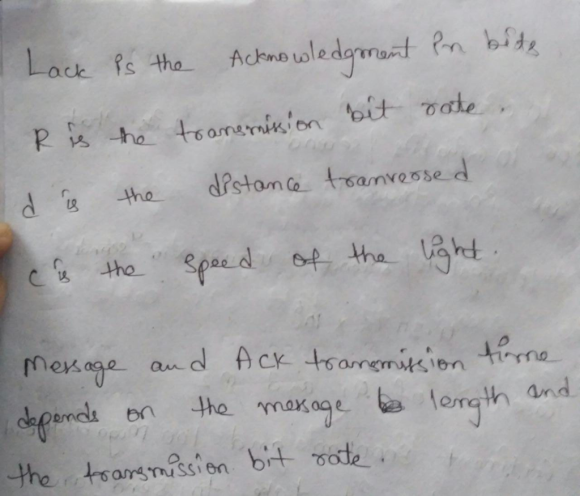 Lack is the Acknowledgment in bits
R is the transmission bit rate.
d is the distance tranversed
c is the speed of the light.
Message and ACK transmission time
depends on the message length and
the transmission bit rate.